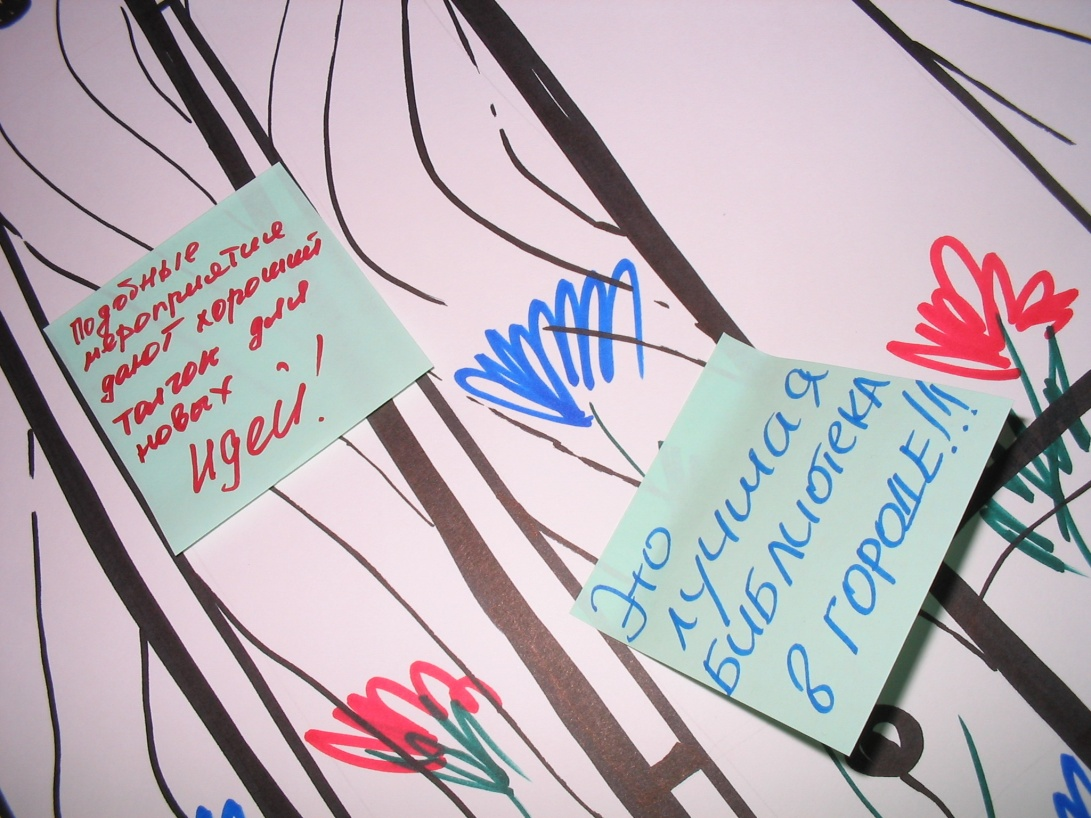 Подобные
мероприятия
дают хороший
толчок для
новых
идей!
ЭТО
ЛУЧШАЯ
БИБЛИОТЕКА
В ГОРОДЕ!!!